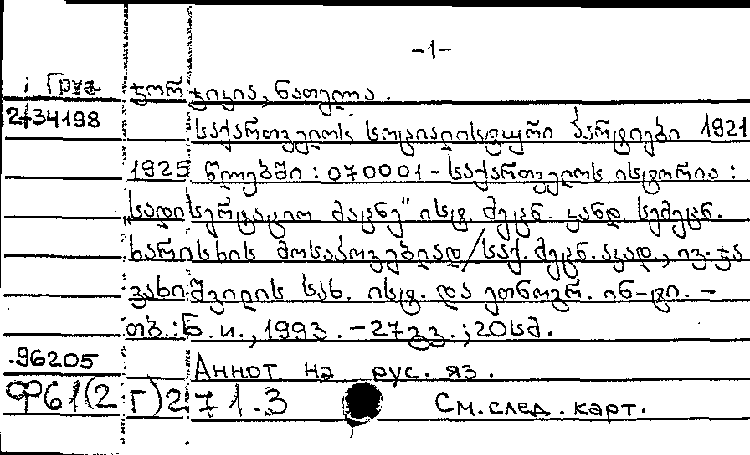 -1-
Груз ჭიჭია, ნათელა.
2434198
საქართველოს სოციალისტური პარტიები 1921
1925 წლებში : 070001 - საქართველოს ისტორია :
სადისერტაციო მაცნე" ისტ. მეცნ. კანდ. სამეცნ.
ხარისხის მოსაპოვებლად / საქ. მეცნ. აკად., ივ. ჯა
ვახიშვილის სახ. ისტ. და ეთნოგრ. ინ-ტი. -
თბ. : Б. и., 1993. - 27 გვ. ; 20 სმ.
96205
Аннот на рус. яз.
Ф61(2Г)271.3 См. след. карт.